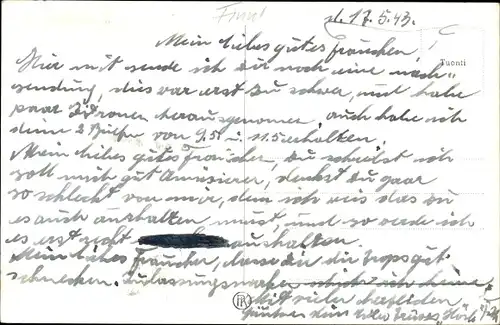 d. 17.5.43.
Mein liebes gutes Frauchen!
Tuonti
Hier mit sende ich Dir noch eine nach"
sendung, dies war erst zu schwer, und habe
paar Zitronen herausgenommer, auch habe ich
deine 2 Briefe von 9.5. u. 11.5 erhalten.
Mein liebes gutes Frauchen, Du schreibst ich
soll mich gut Amüsieren, denkst Du gaar
so schlecht von mir, denn ich weis das Du
es auch aushalten must, und so werde ich
es erst recht aushalten.
Mein liebes Frauchen, lasse dir die gut
schmecken. Zulassungsmarken schicke ich keine,
Mit vielen herzlichen
dein